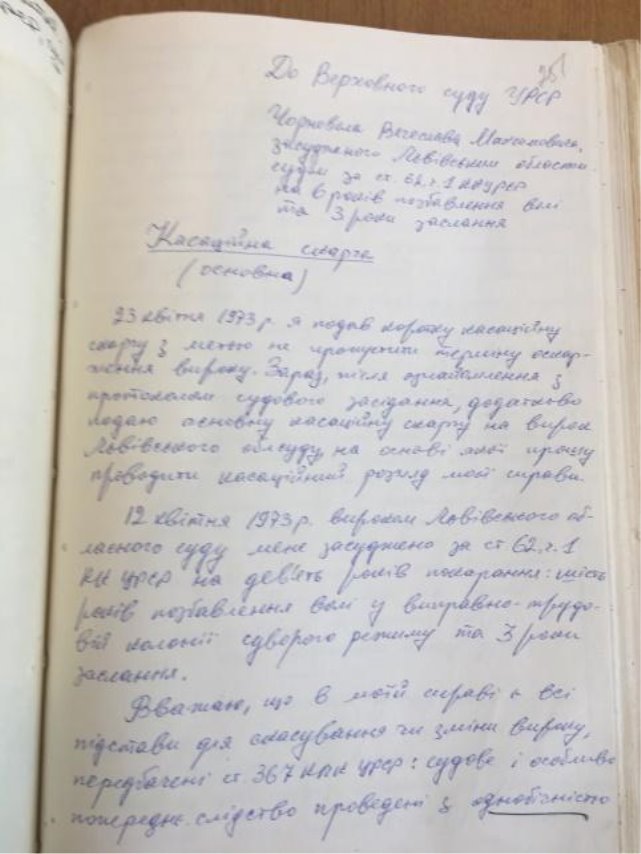 381
До Верховного суду УРСР
Чорновола Вячеслава Максимовича,
засудженого Львівським обласним
судом за ст. 62, ч. 1 КК УРСР
на 6 років позбавлення волі
та 3 роки заслання
Касаційна скарга
(основна)
23 квітня 1973 р. я подав коротку касаційну
скаргу з метою не пропустити терміну оскар-
ження вироку. Зараз, після ознайомлення з
протоколом судового засідання, додатково
подаю основну касаційну скаргу на вирок
Львівського облсуду, на основі якої прошу
проводити касаційний розгляд моєї справи.
12 квітня 1973 р. вироком Львівського об-
ласного суду мене засуджено за ст. 62, ч. 1
КК УРСР на дев'ять років покарання: шість
років позбавлення волі у виправно-трудо-
вій колонії суворого режиму та 3 роки
заслання.
Вважаю, що в моїй справі є всі
підстави для скасування чи зміни вироку,
передбачені ст. 367 КПК УРСР: судове і особливо
попереднє слідство проведені з однобічністю